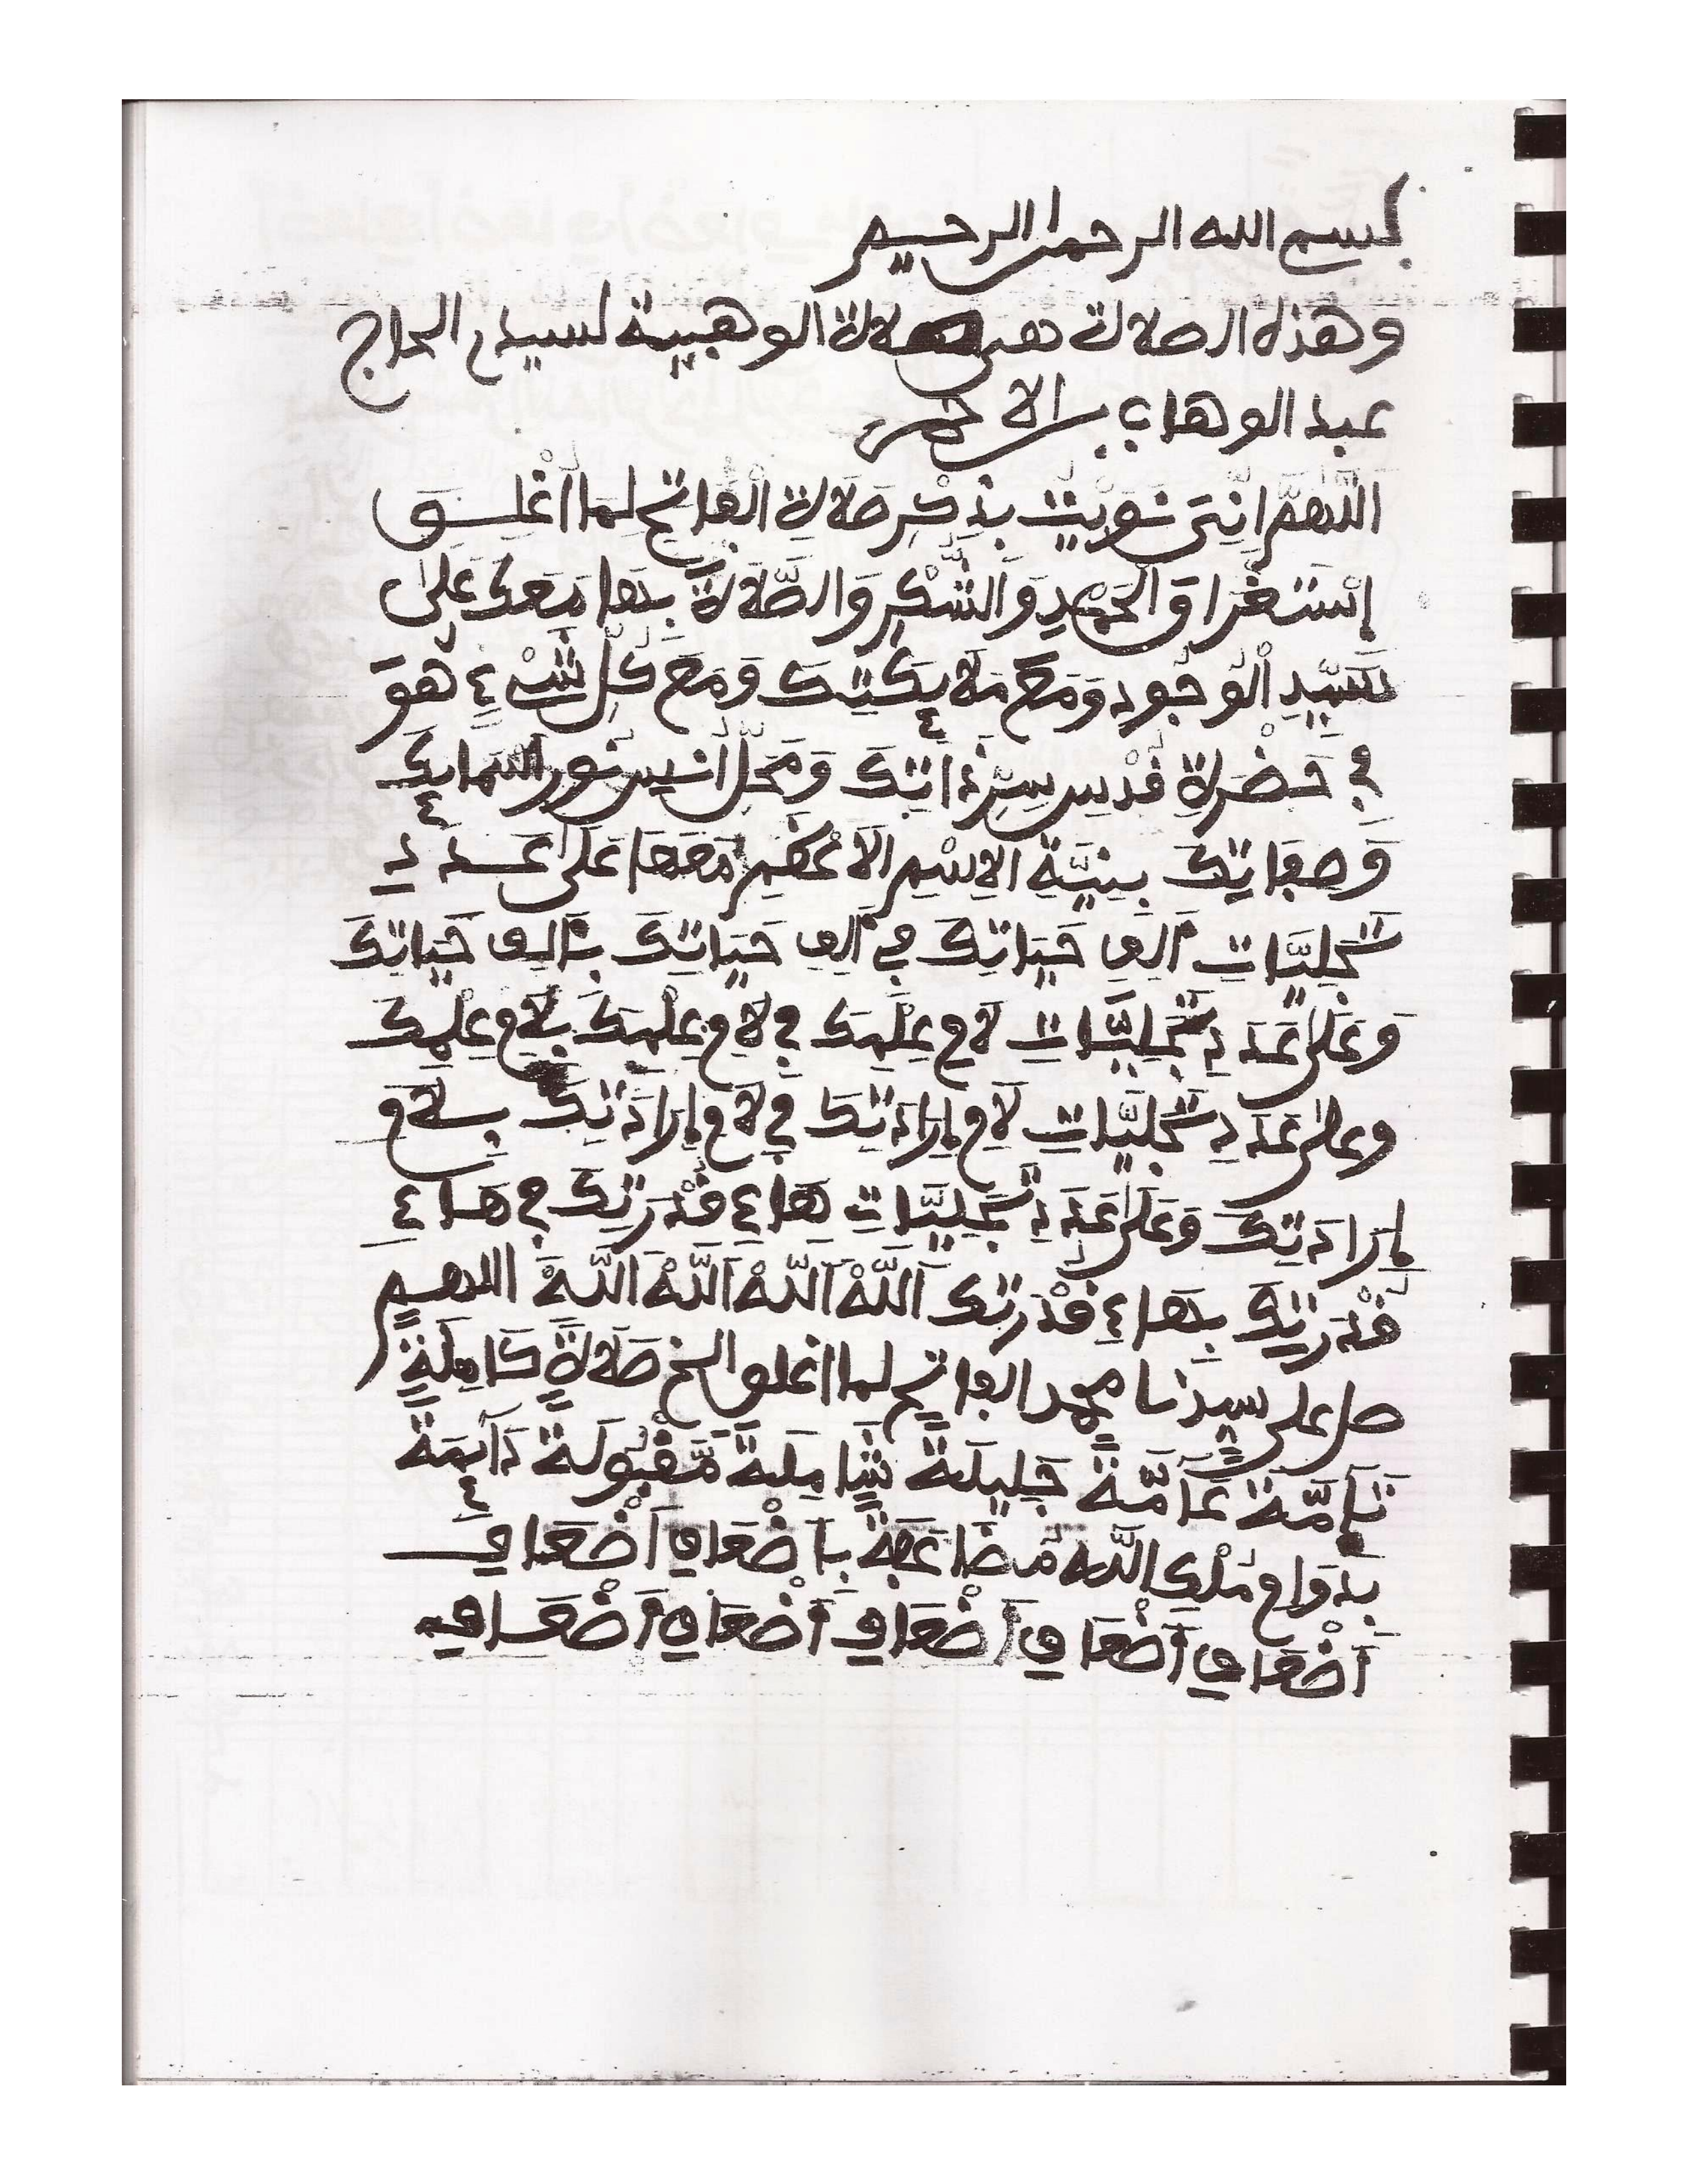 بسم الله الرحمن الرحيم
وهذه الصلاة هي صلاة الوهبية لسيدي الحاج
عبد الوهاب بن الاحمر
اللَّهُمَّ إِنِّي نَوَيْتُ بِذِكْرِ صَلَاةِ الْفَاتِحِ لِمَا أُغْلِقَ
إِسْتَغْرَاقَ الْحَمْدِ وَالشُّكْرِ وَالصَّلَاةَ بِهَا مَعَكَ عَلَى
سَيِّدِ الْوُجُودِ وَمَعَ مَلَائِكَتِكَ وَمَعَ كُلِّ شَيْءٍ هُوَ
فِي حَضْرَةِ قُدْسِ سِرِّ ذَاتِكَ وَمَحَلِّ أُنْسِ نُورِ أَسْمَائِكَ
وَصِفَاتِكَ بِنِيَّةِ الِاسْمِ الْأَعْظَمِ مَعَهَا عَلَى عَدَدِ
تَجَلِّيَاتِ أَلِفِ حَيَاتِكَ فِي أَلِفِ حَيَاتِكَ بِأَلِفِ حَيَاتِكَ
وَعَلَى عَدَدِ تَجَلِّيَاتِ لَامِ عِلْمِكَ فِي لَامِ عِلْمِكَ بِلَامِ عِلْمِكَ
وعلى عَدَدِ تَجَلِّيَاتِ لَامِ إِرَادَتِكَ فِي لَامِ إِرَادَتِكَ بِلَامِ
إِرَادَتِكَ وَعَلَى عَدَدِ تَجَلِّيَاتِ هَاءِ قُدْرَتِكَ فِي هَاءِ
قُدْرَتِكَ بِهَاءِ قُدْرَتِكَ اَللَّهْ اَللَّهْ اَللَّهْ اَللَّهْ اللهم
صل على سيدنا محمد الفاتح لما اغلق الخ صَلَاةً كَامِلَةً
تَآمَّةً عَآمَّةً جَلِيلَةً شَامِلَةً مَّقْبُولَةً دَآئِمَةً
بِدَوَامِ مُلْكِ اللَّهِ مُضَاعَفَةً بِأَضْعَافِ أَضْعَافِ
أَضْعَافِ أَضْعَافِ أَضْعَافِ أَضْعَافِ أَضْعَافِهِ